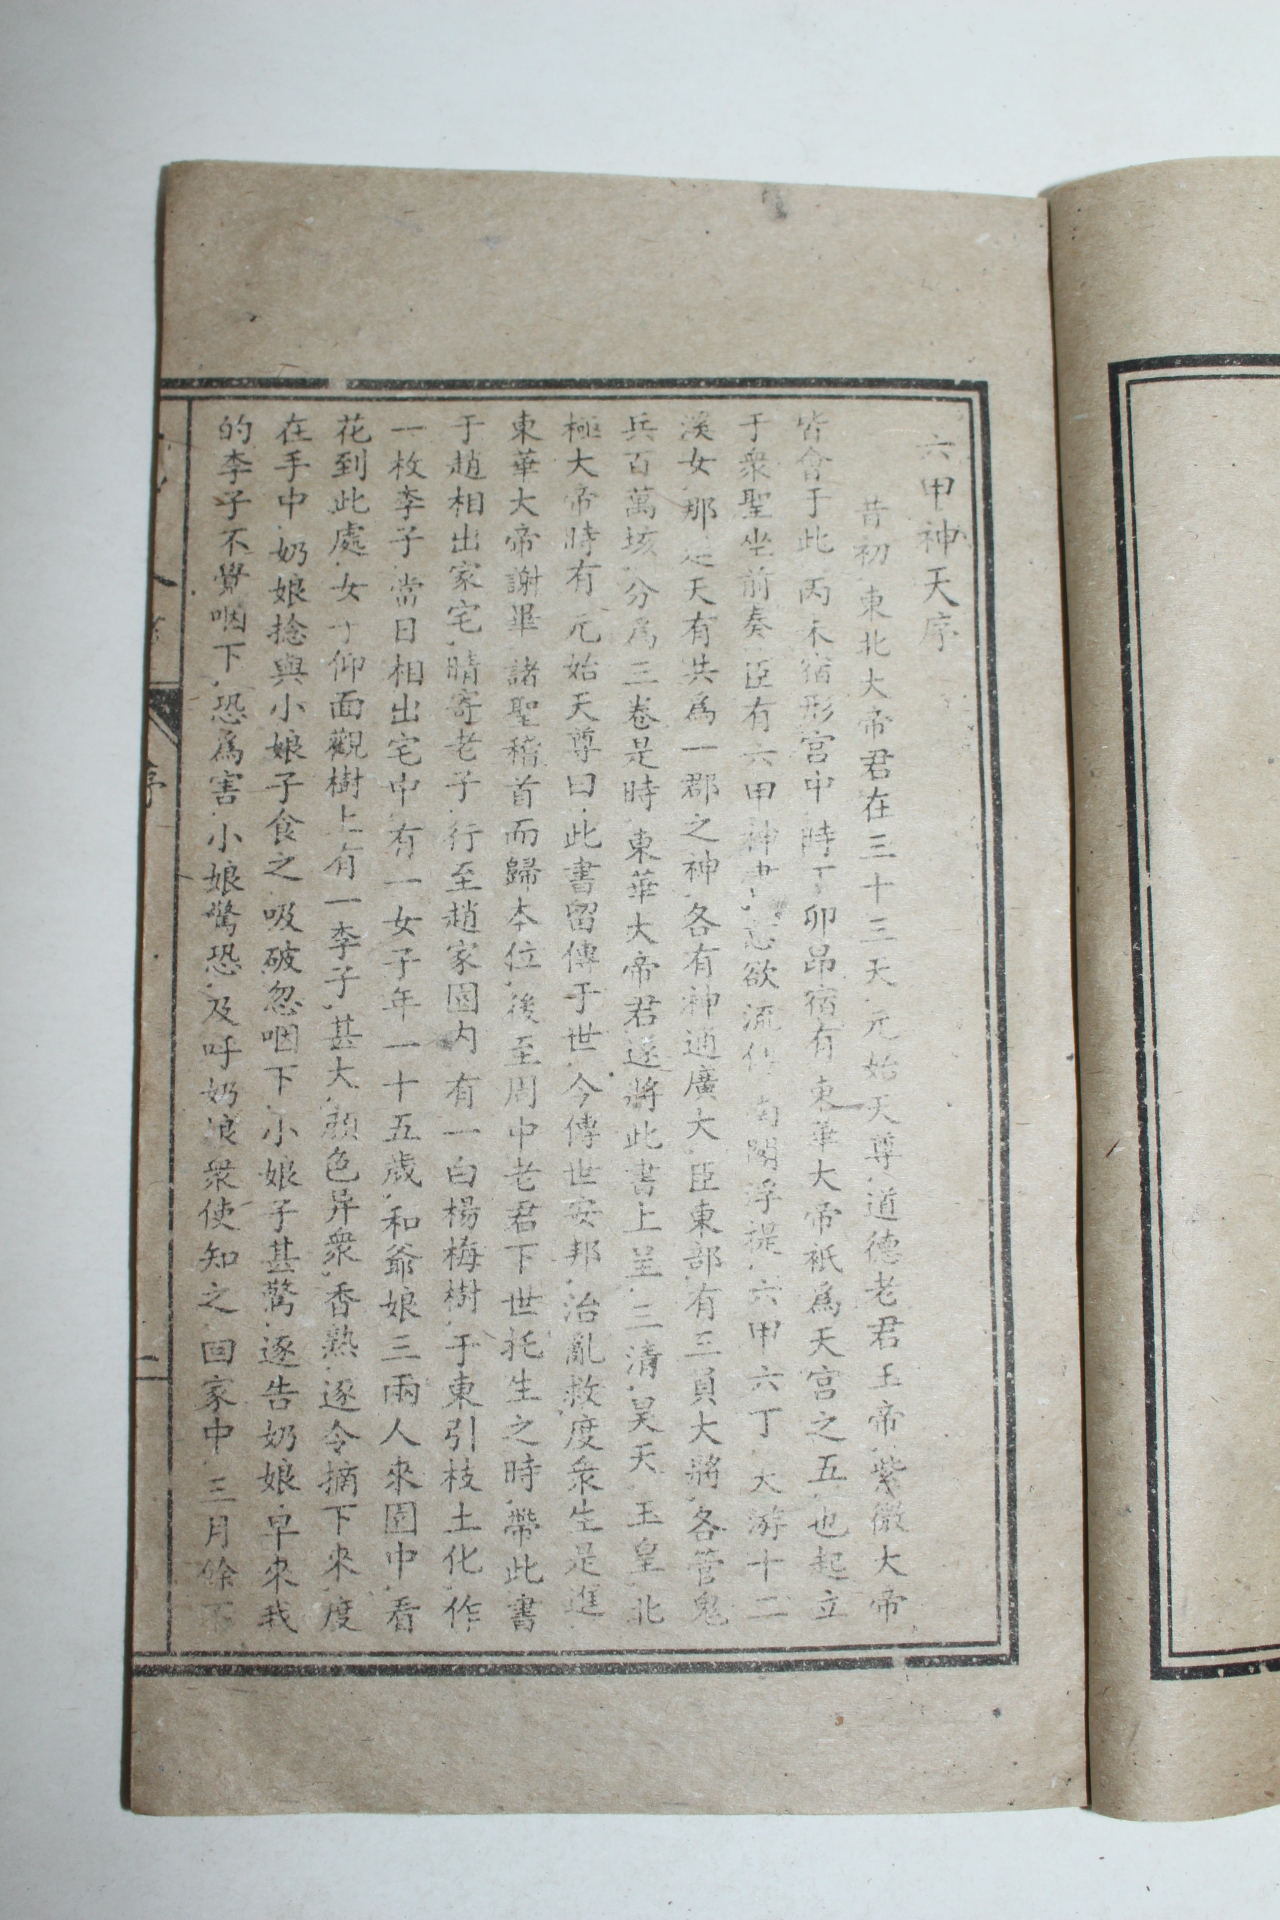 六甲神天序
昔初東北大帝君在三十三天元始天尊道德老君玉帝紫微大帝
皆會于此丙未宿形宮中時丁卯昂宿有東華大帝祇爲天宮之五也起立
于衆聖坐前奏臣有六甲神書欲流南閻浮提六甲六丁大游十二
溪女那是天有共爲一郡之神各有神通廣大臣東部有三員大將各管鬼
兵百萬垓分爲三卷是時東華大帝君遂將此書上呈三清昊天玉皇北
極大帝時有元始天尊曰此書留傳于世今傳世安邦治亂救度衆生是進
東華大帝謝畢諸聖稽首而歸本位後至周中老君下世托生之時帶此書
于趙相出家宅晴寄老子行至趙家園内有一白楊梅樹于東引枝土化作
一枚李子當日相出宅中有一女子年一十五歲和爺娘三兩人來園中看
花到此處女子仰面觀樹上有一李子甚大顔色异衆香熟逐令摘下來度
在手中奶娘捻與小娘子食之吸破忽咽下小娘子甚驚逐告奶娘早來我
的李子不覺咽下恐爲害小娘驚恐及呼奶娘衆使知之回家中三月餘不
序
二